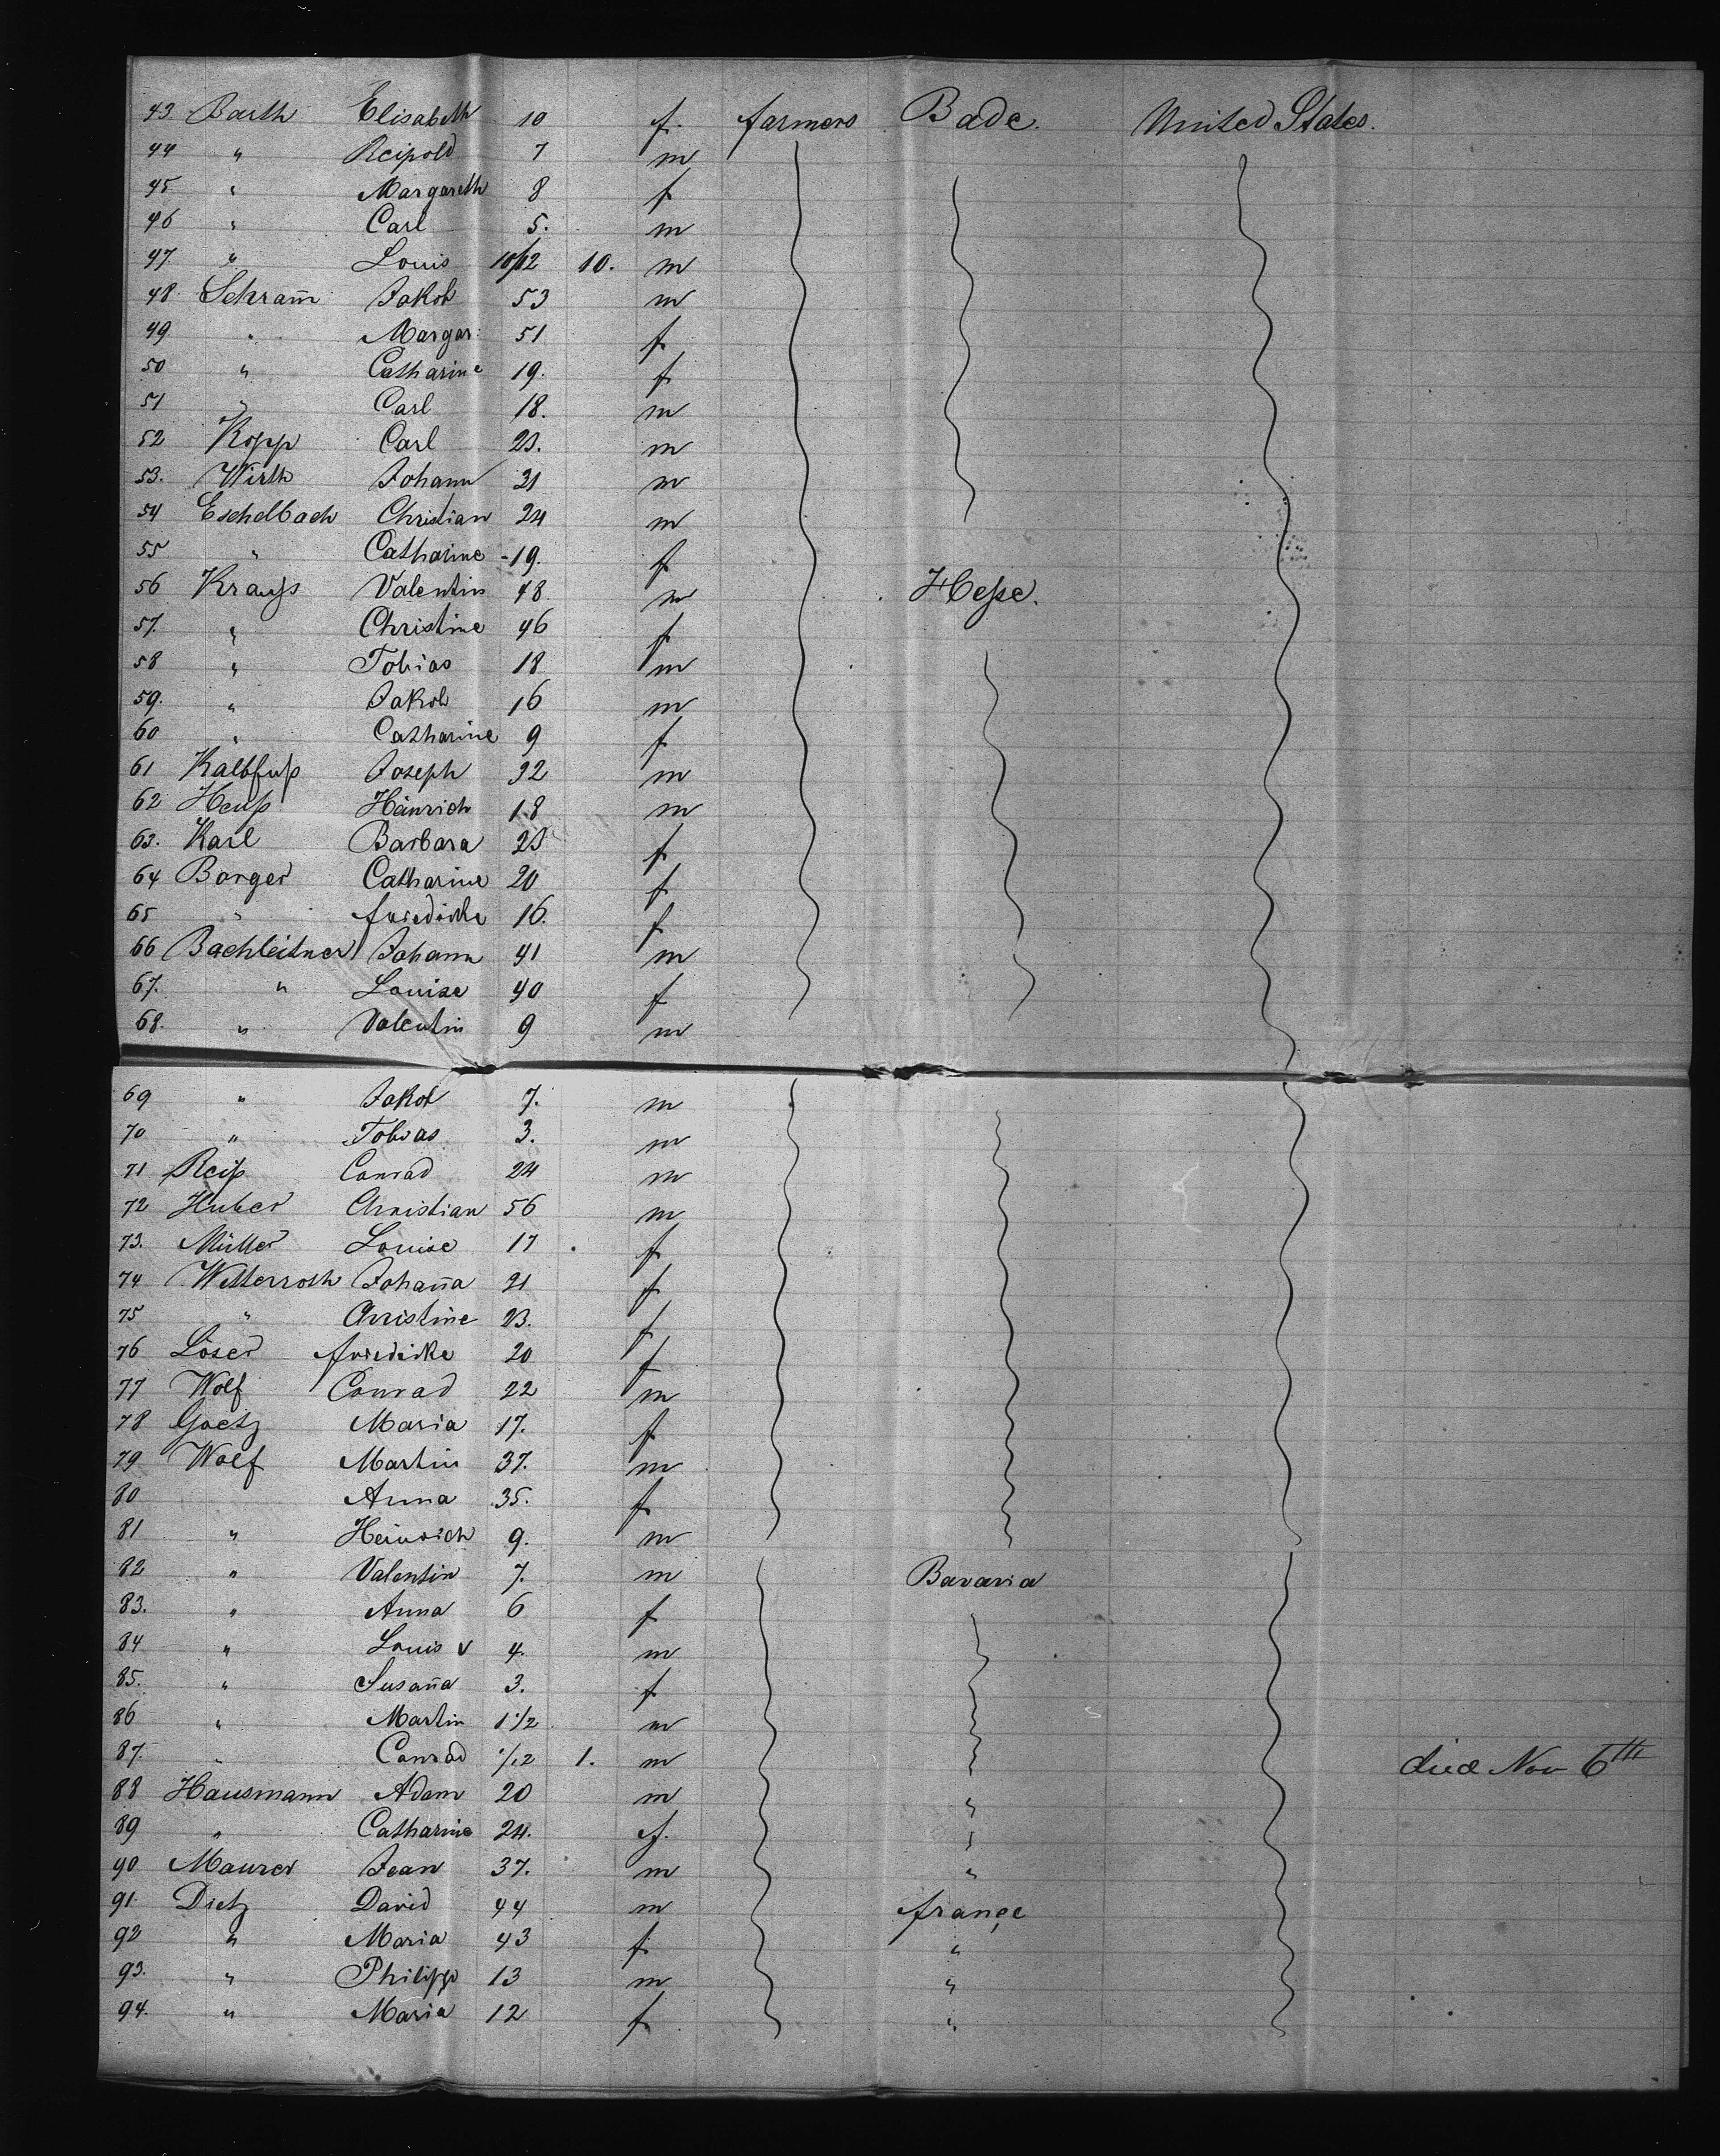 43 Barth Elisabeth 10 f. farmers Bade. United States.
44 " Reipold 7 m
45 " Margareth 8 f
46 " Carl 5. m
47. " Louis 10/12 10. m
48 Schram̄ Jakob 53 m
49 " Margar: 51 f
50 " Catharine 19. f
51 " Carl 18. m
52 Kopp Carl m
53. Wirth Johann m
54 Eschelbach Christian 24 m
55 " Catharine -19. f
56 Krauss Valentin 48 m Hesse.
57. " Christine 46 f
58 " Tobias 18 m
59. " Jakob 16 m
60 " Catharine 9 f
61 Kalbfuß Joseph 32 m
62 Heuß Heinrich 18 m
63. Karl Barbara f
64 Borger Catharine 20 f
65 " friedrike 16. f
66 Bachleitner Johann 41 m
67. " Louise 40 f
68. " Valentin 9 m
69 " Jakob 7. m
70 " Tobias 3. m
71 Reiß Conrad 24 m
72 Huber Christian 56 m
73. Müller Louise 17 f
74 Wetterroth Johan̄a 21 f
75 " Christine 23. f
76 Löser friedrike 20 f
77 Wolf Conrad 22 m
78 Goetz Maria 17. f
79 Wolf Martin 37. m
80 Anna 35. f
81 " Heinrich 9. m
82 " Valentin 7. m Bavaria
83. " Anna 6 f
84 " Louis v 4. m
85. " Susan̄a 3. f
86 " Martin 1 1/2 m
87. " Conrad 1/12 1. m died Nov 6th
88 Hausmann Adam 20 m "
89 " Catharine 24. f. "
90 Maurer Jean 37. m "
91. Dietz David 44 m françe
92 " Maria 43 f "
93. " Philipp 13 m "
94. " Maria 12 f "